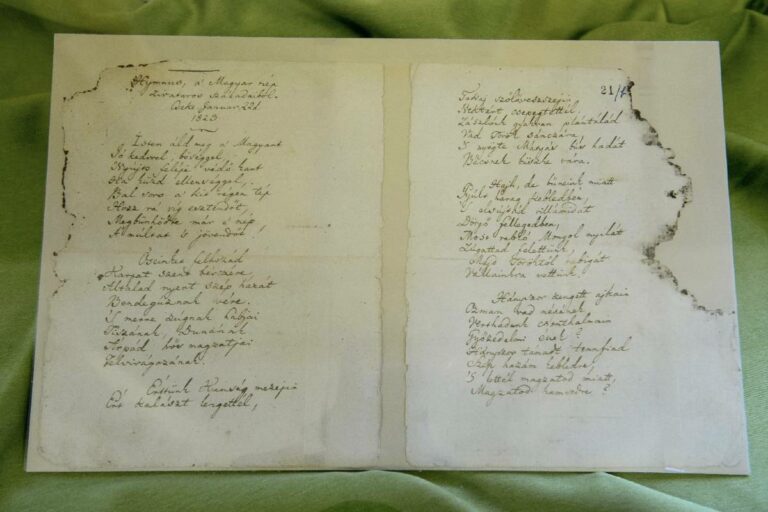 Hymnus, a' Magyar nép
zivataros századaiból.
Cseke Januar. 22d.
1823
Isten áldd meg a' Magyart
Jó kedvvel, bőséggel,
Nyújts feléje védő kart
Ha küzd ellenséggel,
Bal sors a' kit régen tép
Hozz rá víg esztendőt,
Megbünhödte már e' nép
A' múltat 's jövendőt.
Őseinket felhozád
Kárpát szent bérczére,
Általad nyert szép hazát
Bendegúznak vére.
'S merre zúgnak habjai
Tiszának, Dunának
Árpád hős magzatjai
Felvirágozának.
Értünk Kunság mezején
Ért kalászt lengettél,
21/
Tokaj szőlővesszején
Nektárt csepegtettél.
Zászlónk gyakran plántálád
Vad Török sánczára,
'S nyögte Mátyás bús hadát
Bécsnek büszke vára.
Hajh, de bűneink miatt
Gyúlt harag kebledben,
'S elsújtád villámidat
Dörgő fellegedben,
Most rabló Mongol nyilát
Zúgattad felettünk,
Majd Töröktől rabigát
Vállainkra vettünk.
Hányszor zengett ajkain
Ozman vad népének
Vert hadunk csonthalmain
Győzedelmi ének?
Hányszor támadt tennfiad
Szép hazám kebledre,
'S lettél magzatod miatt,
Magzatod hamvedre?